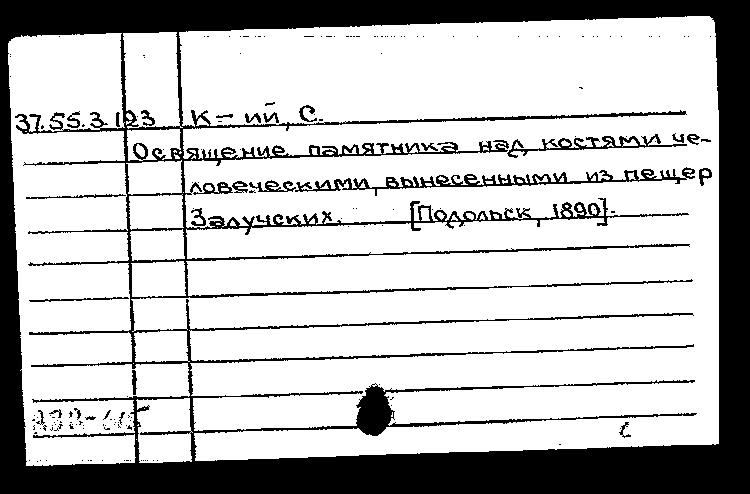 37.55.3.123 К-ий, С.
Освящение памятника над костями че-
ловеческими, вынесенными из пещер
Залучских. [Подольск, 1890].